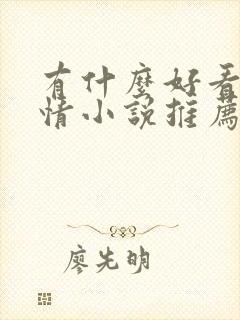 有什麼好看
情小說推薦
廖先明